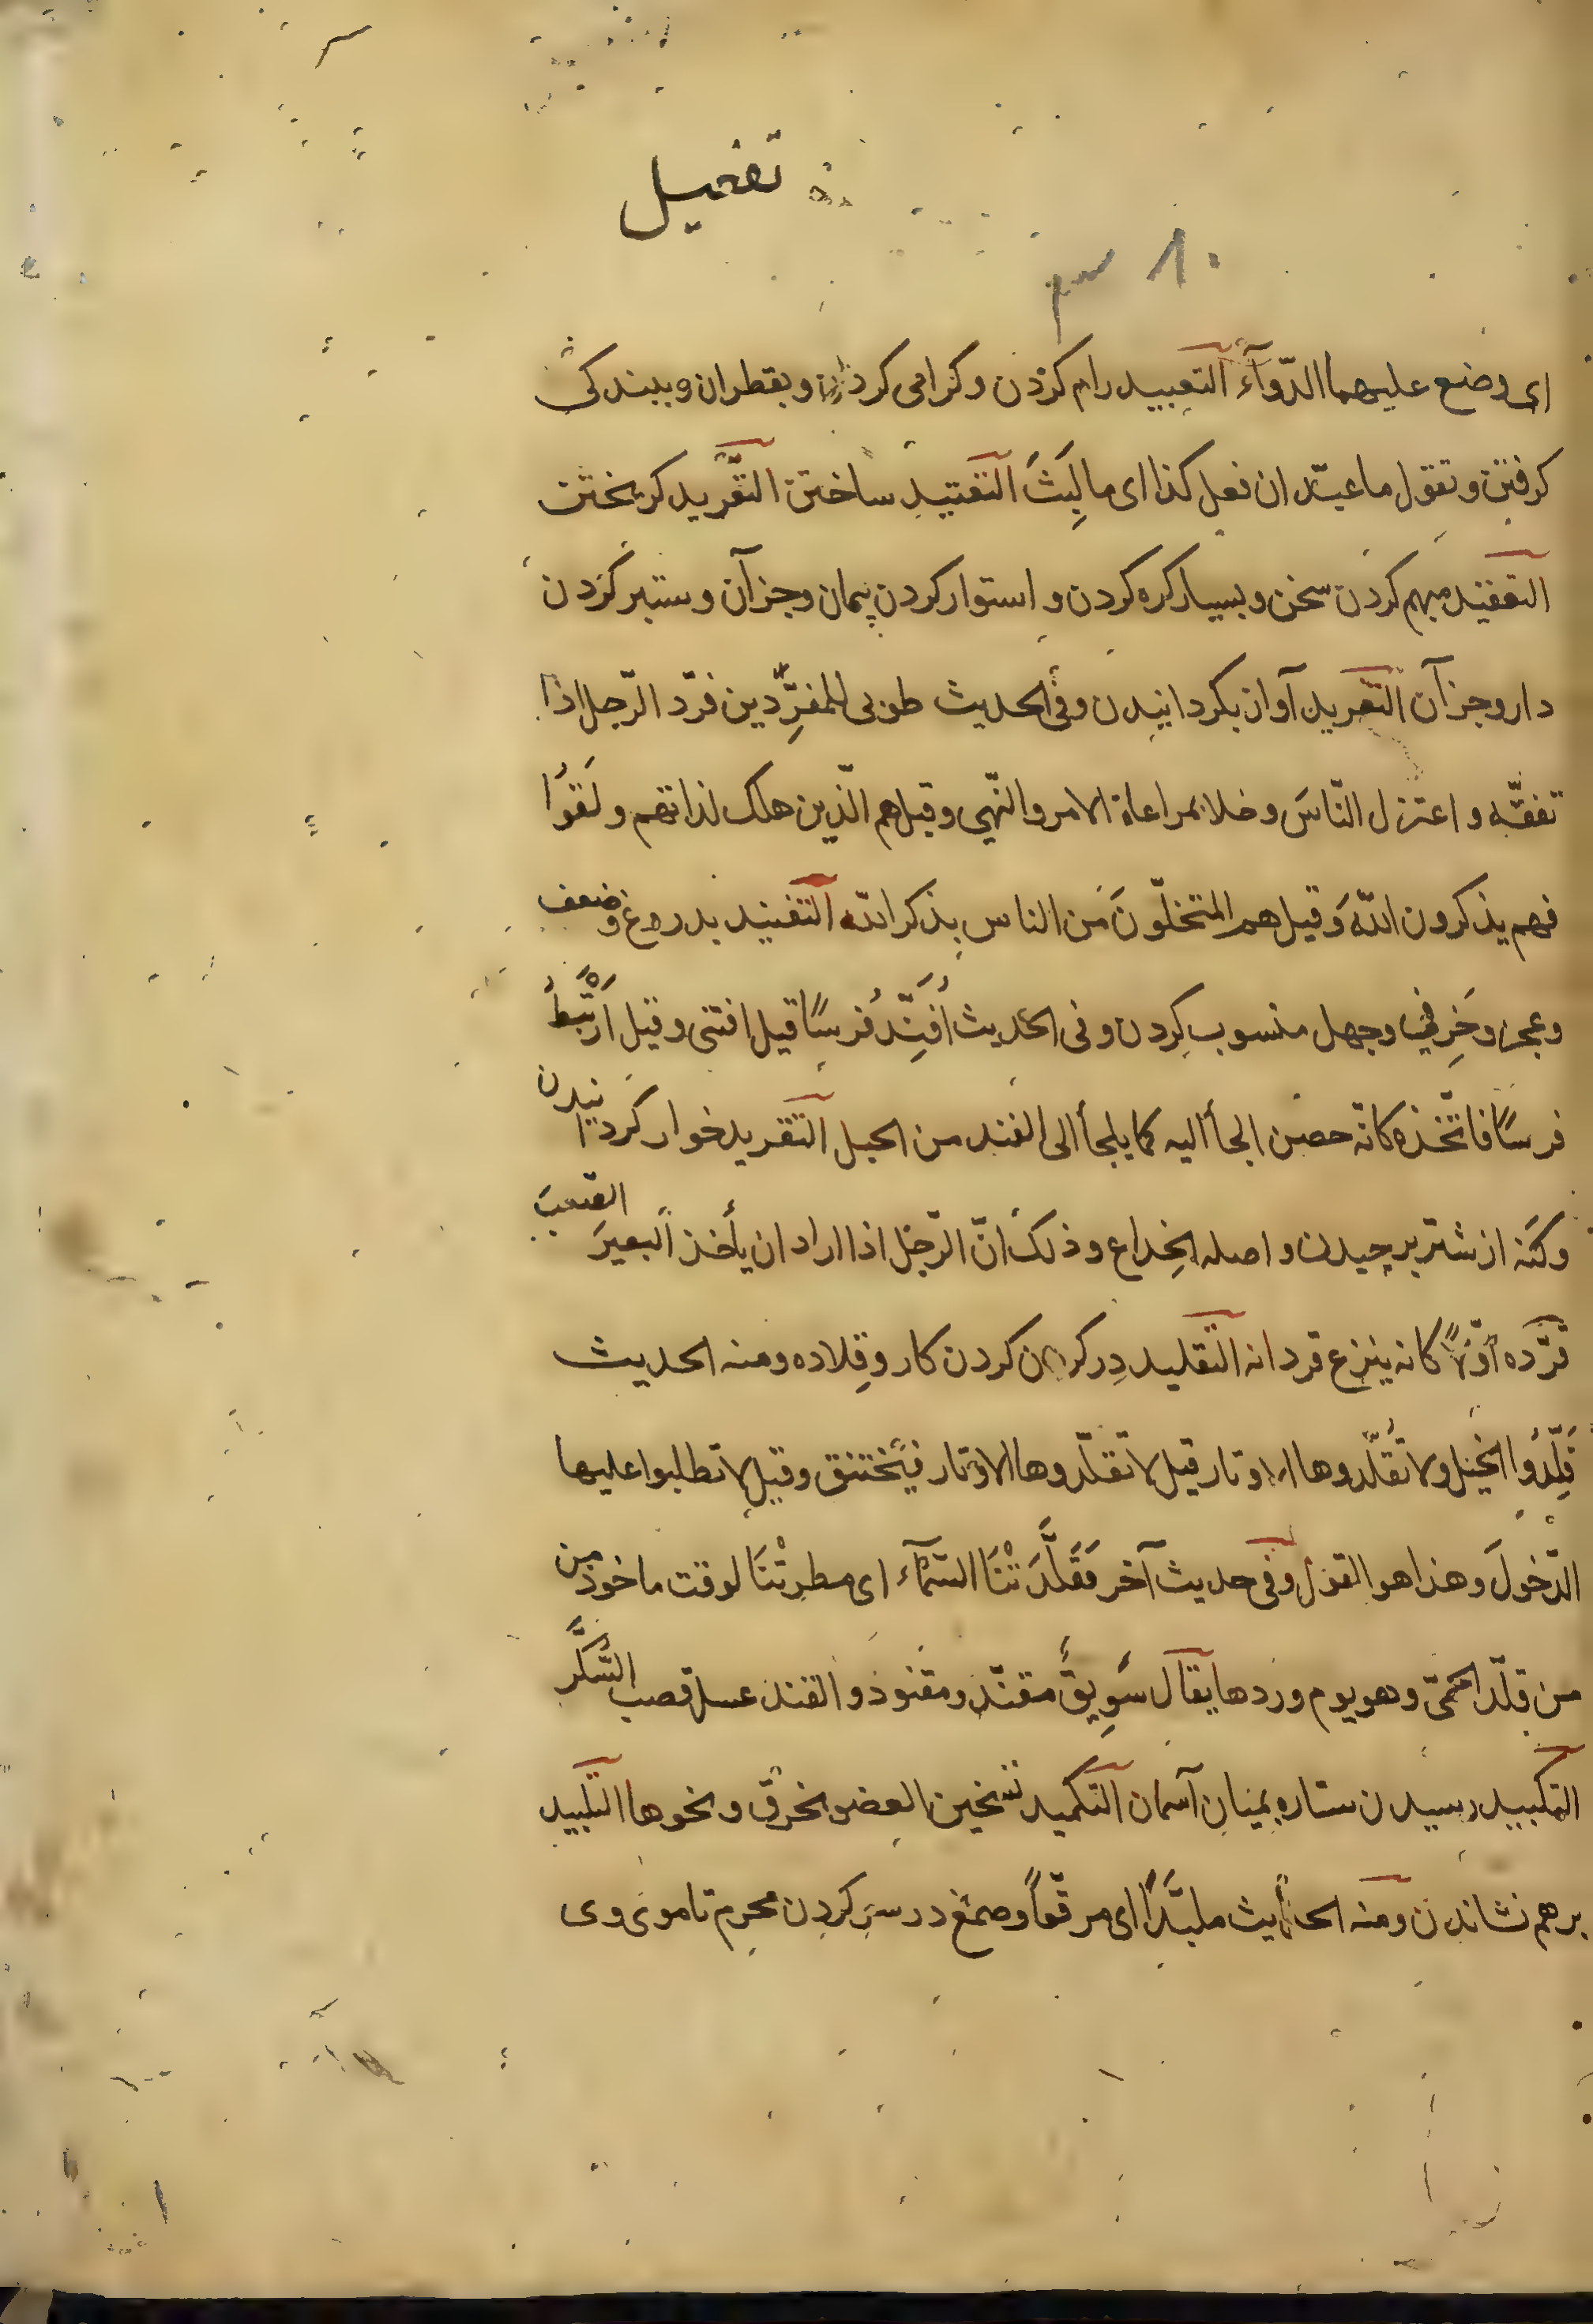 تفعیل
ای وضع علیهما الدّوآءَ التعبید رام کردن وکرامی کردن وبقطران و ببندکی
کرفتن و تقول ما عبّد ان فعل کذا ای ما لَبِثَ التقتید ساختن التَّقرید کریختن
التعقید مبهم کردن سخن و بسیار کره کردن و استوار کردن پیمان وجز آن وستبر کردن
دارو جز آن التغرید آواز بکردانیدن وفی الحدیث طوبی للمفرِّدین فرّد الرّجل اذا
تفقّه و اعتزل النّاسَ وخلا بمراعاة الامر والنّهی وقیل هم الّذین هلک لذاتهم و لَقوُا
فهم یذکرون اللّهَ وقیل هم المتخلّونَ من الناس بذکر اللّه التفنید بدروغ و ضعف
وعجز وخَرِفی وجهل منسوب کردن و فی الحَدیث اُفَنِّدُ فرسًا قیل اقتنی وقیل اَرْتَبِطُ
فرسًا فاتّخذه کانّه حصن الجأ الیه کما یلجأ الی الفند من الجبل التقرید خوار کردانیدن
وکنه از شتر برچیدن و اصله الخِداع و ذلک انّ الرّجل اذا اراد ان یأخذ البعیرَ الصّعبَ
قرّده اوّلاً کانه ینزع قردانه التقلید در کردن کردن کار وقِلاده ومنه الحدیث
قَلِّدُوا الخیل ولا تُقلّدوها الاوتار قیل لا تقلّدوها الاوتار فیختنق وقیل لا تطلبوا علیها
الدّخولَ وهذا هو القول وفی حدیث آخر فَقَلَّدَتْنَا السّمآء ای مطرتْنَا لوقت ماخوذ من
من قلد الحمّی و هو یوم وردها یقال سَوِیقٌ مقنّد ومقنود و القند عسل قصب السُّکَّر
التکبید رسیدن ستاره بمیان آسمان التکمید تسخین العضو بخرق و نحوها التلبید
برهم نشاندن ومنه الحدیث ملبَّدًا ای مرقّعاً و صمغ در سر کردن محرم تا موی وی